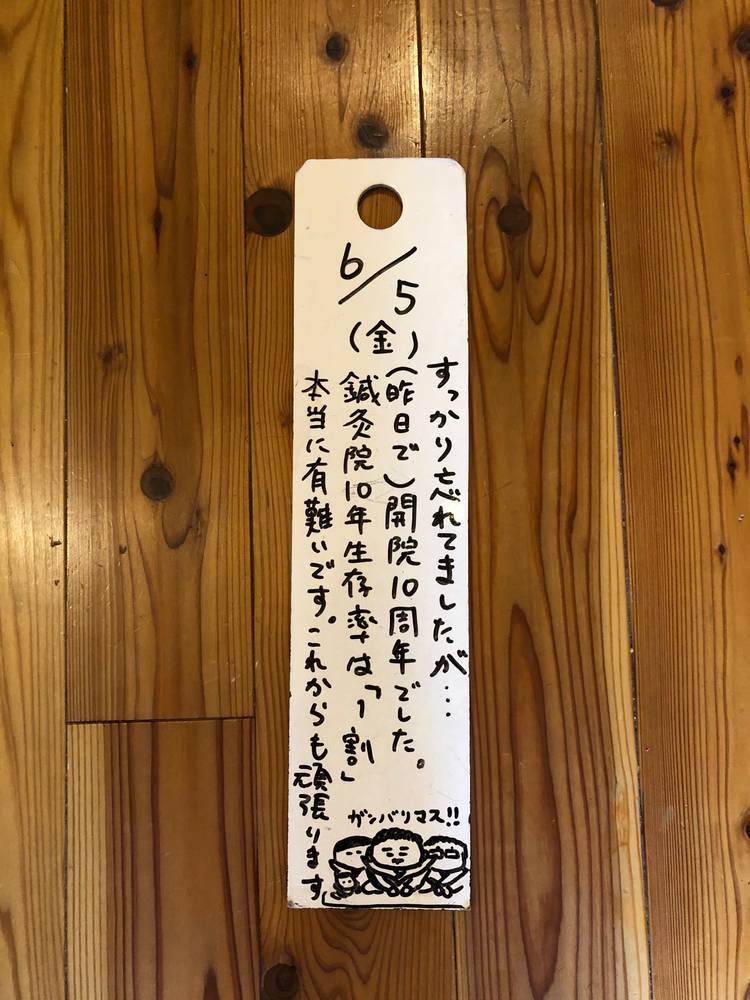 6/5
(金)
すっかり忘れてましたが…
(昨日で)開院10周年でした。
鍼灸院10年生存率は「1割」
本当に有難いです。これからも頑張ります
ガンバリマス!!